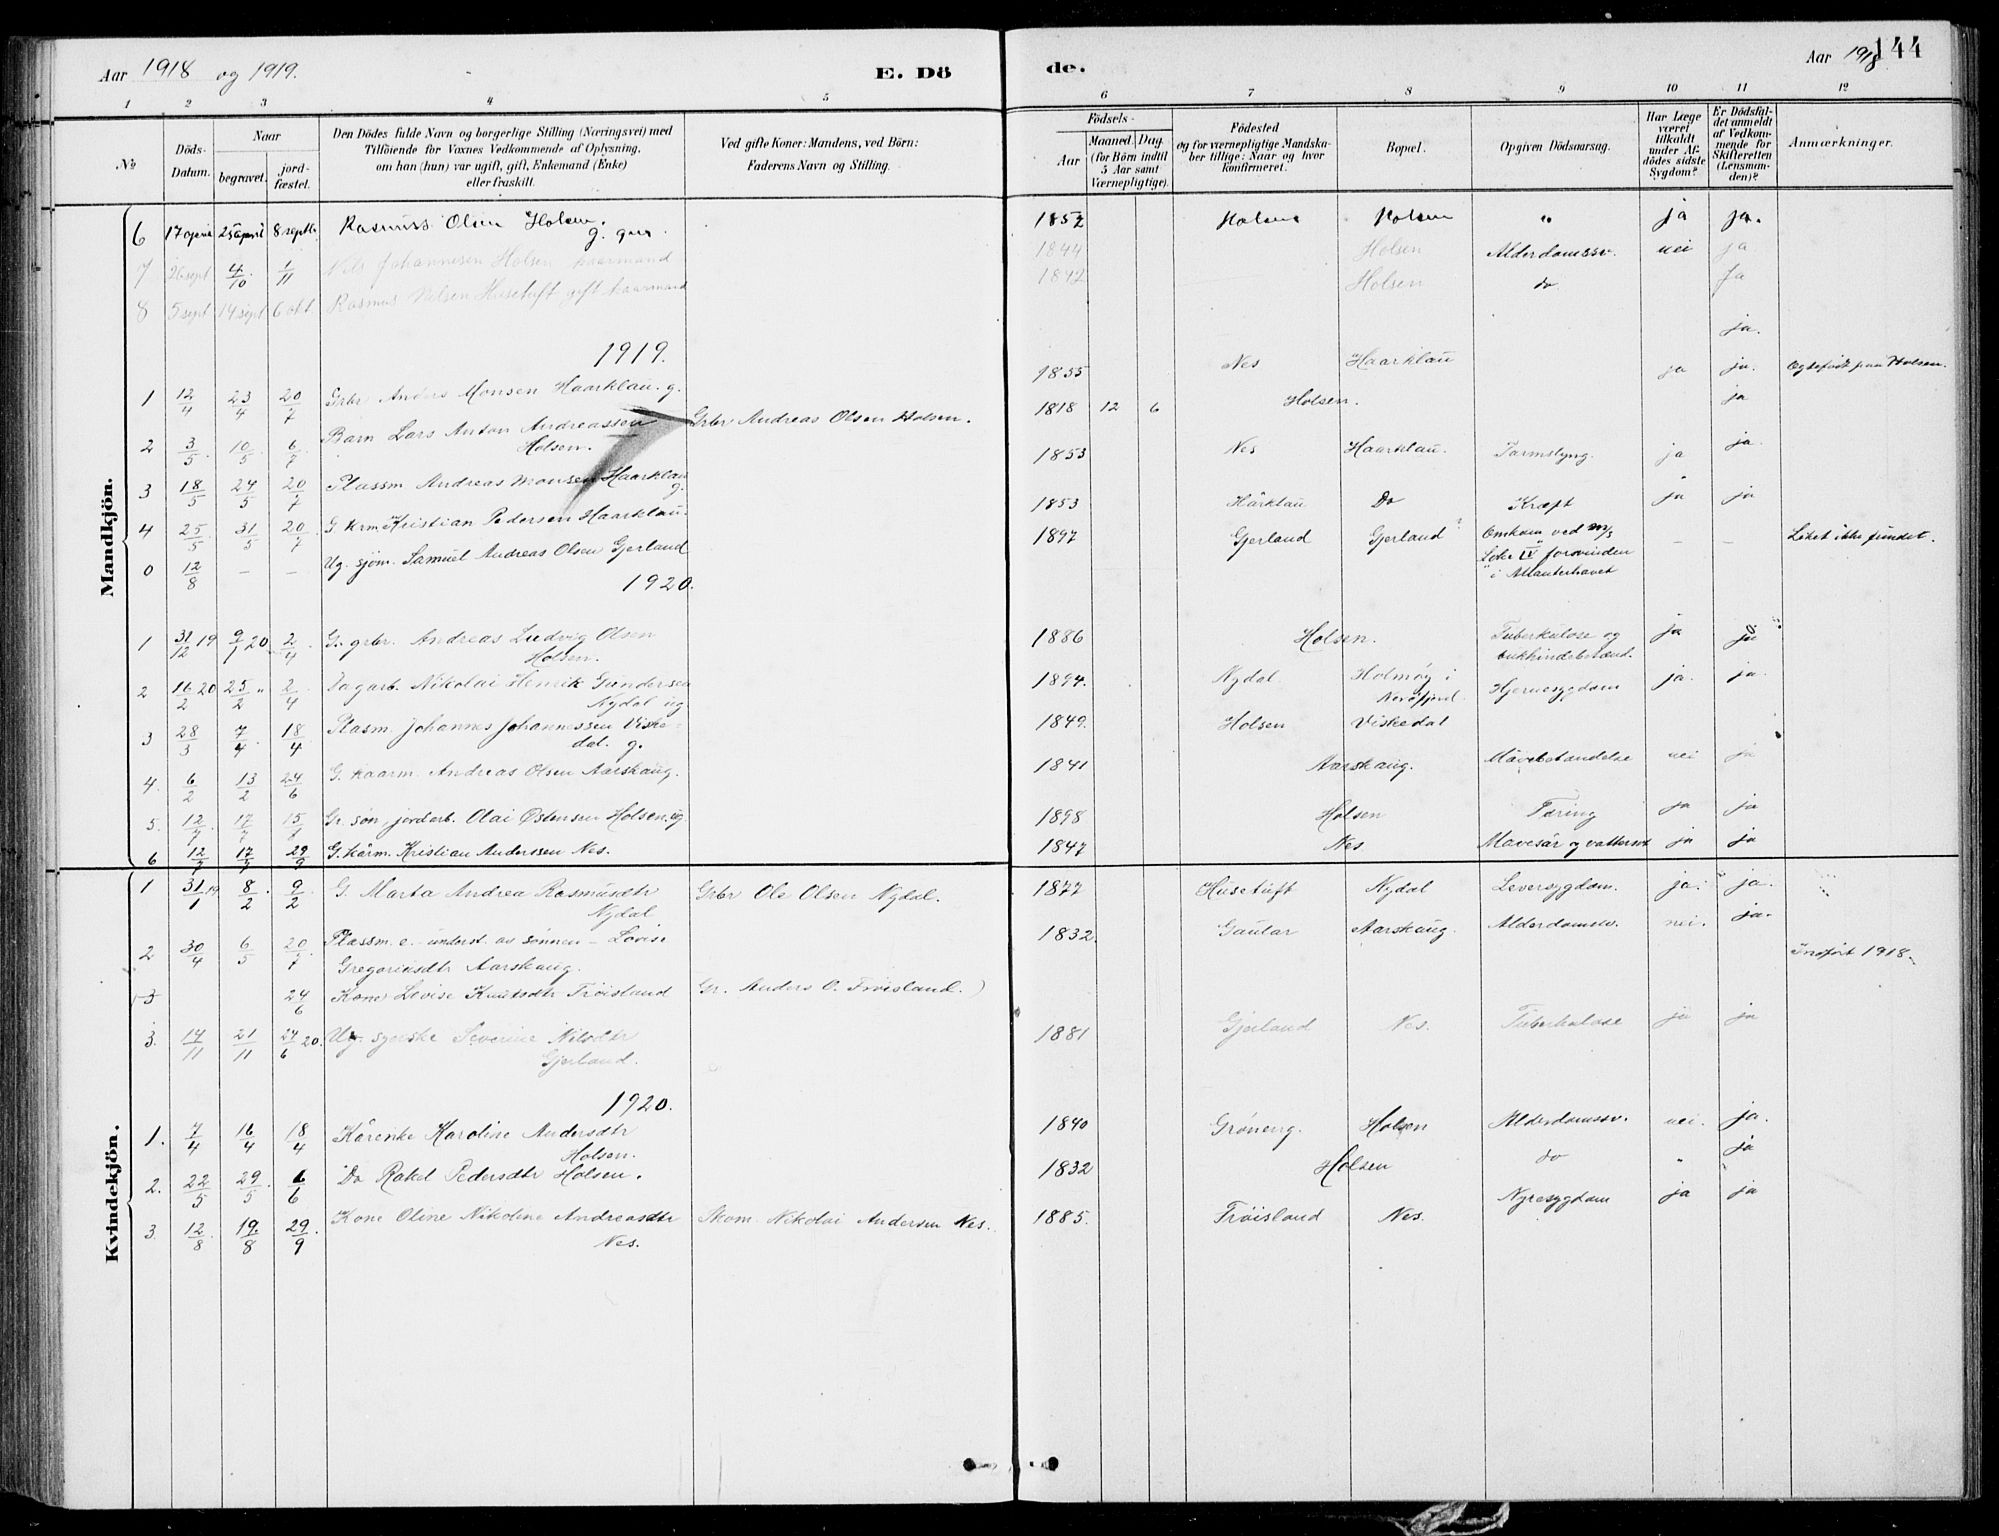 Aar 1918 og 1919.
E. Dö
de.
Aar 1918
144
1 2 3 4 5 6 7 8 9 10 11 12
No
Döds-
Datum.
Naar
begravet.
jord-
fæstet.
Den Dödes fulde Navn og borgerlige Stilling (Næringsvei) med
Tilföiende for Voxnes Vedkommende af Oplysning,
om han (hun) var ugift, gift, Enkemand (Enke)
eller fraskilt.
Ved gifte Koner: Mandens, ved Börn:
Faderens Navn og Stilling.
Födsels-
Aar
Maaned. Dag.
(for Börn indtil
5 Aar samt
Værnepligtige).
Födested
og for værnepligtige Mandska-
ber tillige: Naar og hvor
konfirmeret.
Bopæl.
Opgiven Dödsaarsag.
Har Læge
været
tilkaldt
under Af-
dödes sidste
Sygdom?
Er Dödsfal-
det anmeldt
af Vedkom-
mende for
Skifteretten
(Lensman-
den)?
Anmærkninger.
Mandkjön.
6 17 april 25 april 8 septb. Rasmus Olsen Holsen. g. gbr. 1857 Holsen Holsen " ja ja.
7 26 sept 4/10 1/11 Nils Johannesen Holsen kaarmand 1844 Holsen Alderdomssv. nei ja
8 5 sept 14 sept 6 okt. Rasmus Nilsen Husetuft gift kaarmand 1842 Holsen do. Ja
ja.
1919.
1 12/4 23/4 20/7 Grbr Anders Monsen Haarklau. g. 1855 Nes Haarklau ja ja. Egtefødt paa Holsen.
2 3/5. 10/5. 6/7 Barn Lars Anton Andreassen
Holsen. Grbr Andreas Olsen Holsen. 1818 12 6 Holsen. ja
3 18/5 24/5 20/7 Plassm Andreas Monsen Haarklau
g. 1853 Nes Haarklau. Tarmslyng. ja ja.
4 25/5 31/5 20/7 G. krm Kristian Pedersen Haarklau. 1853 Hårklau Do Kræft ja ja
0 12/8 – – Ug. sjøm. Samuel Andreas Olsen Gjerland 1897 Gjerland Gjerland Omkom ved m/s
IV forsvinden
i Atlanterhavet – – Liket ikke fundet.
1920.
1 31/12 19 9/1 20 2/4 G. grbr. Andreas Ludvig Olsen
Holsen. 1886 Holsen. Tuberkulose og
bukhindebetænd. ja ja
2 16/2 20 25/2 " 2/4 Dagarb. Nikolai Henrik Gundersen
Nydal ug 1894. Nydal Holmøy i
Hjernesygdom ja. ja.
3 28/3 7/4. 18/4 Plasm. Johannes Johannessen Viske-
dal. g. 1849. Holsen Viskedal
4. 6/2 13/2 24/6 G. kaarm. Andreas Olsen Aarskaug. 1841 Aarskaug. Mavebetændelse nei ja
5. 12/7. 17/7 15/8 Gr. søn, jordarb. Olai Østensen Holsen. ug 1898 Holsen Tæring ja ja
6 12/7 17/7 29/9 G. kårm. Kristian Anderssen Nes. 1847 Nes Mavesår og vattersot ja ja
Kvindekjön.
1 31/1 19 8/2. 9/2. G. Marta Andrea Rasmusdtr
Nydal. Grbr Ole Olsen Nydal. 1877 Husetuft Nydal Leversygdom. ja. ja.
2 30/4 6/5 20/7 Plassm. e. – underst. av sønnen – Lovise
Gregoriusdtr Aarskaug. 1832. Gaular Aarskaug. Alderdomssv. nei. ja.
3 24/6 Kone Lovise Knutsdtr Frøisland Gr. Anders O. Frøisland.) Indført 1918.
3. 17/11 21/11 24/6 20. Ug. syerske Severine Nilsdtr
Gjerland. 1881 Gjerland Nes. Tuberkulose ja ja
1920.
1. 7/4 16/4 18/4 Kårenke Karoline Andersdtr
Holsen. 1840 Grøneng. Holsen Alderdomssv. nei. ja.
2. 22/5 29/5. 6/6 Do Rakel Pedersdtr Holsen. 1832 Holsen do " ja
3. 12/8 19/8 29/9 Kone Oline Nikoline Andreasdtr
Nes. Skom. Nikolai Andersen Nes. 1885. Frøisland Nes. Nyresygdom ja ja